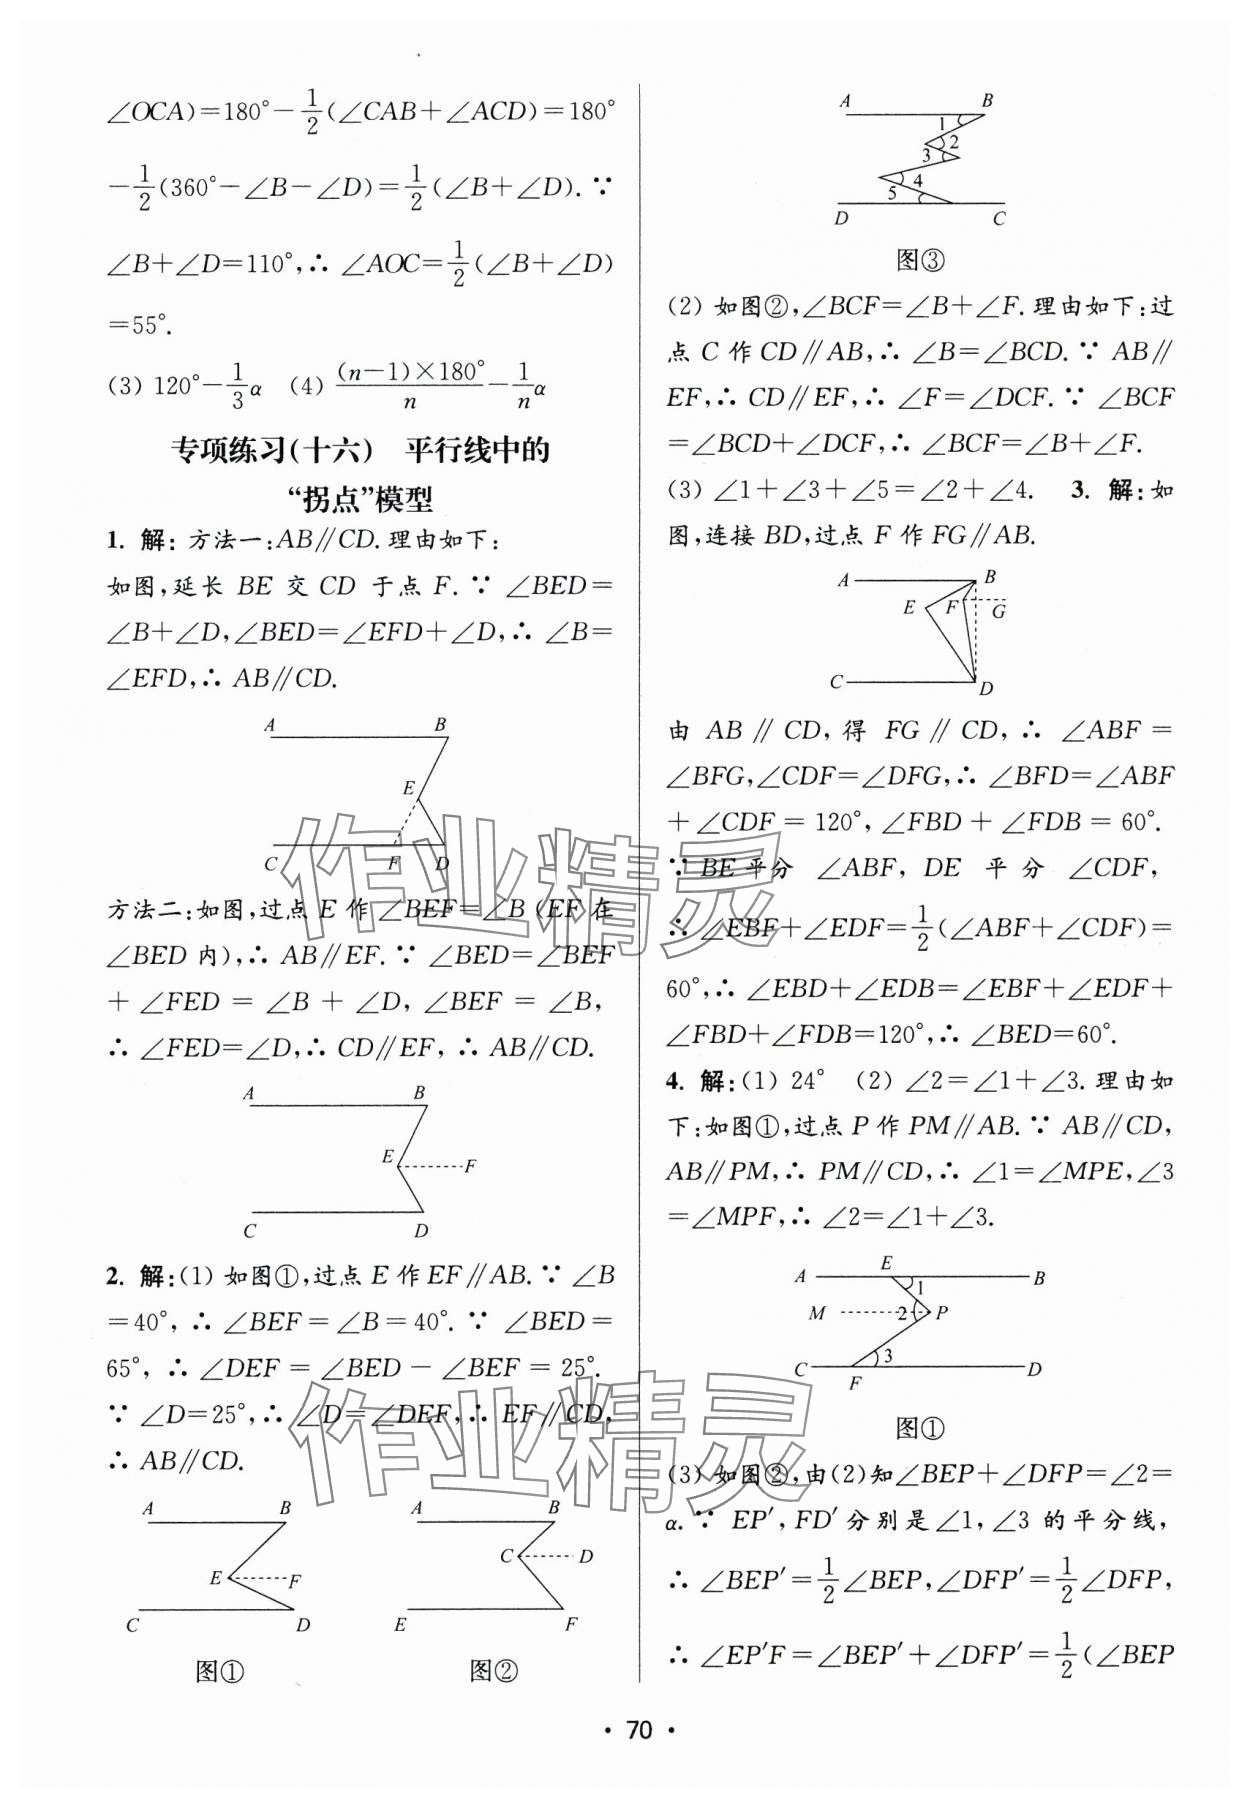 ∠OCA)=180°-1/2(∠CAB+∠ACD)=180°
-1/2(360°-∠B-∠D)=1/2(∠B+∠D).∵
∠B+∠D=110°,∴ ∠AOC=1/2(∠B+∠D)
=55°.
(3) 120°-1/3α (4) (n-1)×180°/n-1/nα
专项练习(十六) 平行线中的
“拐点”模型
1. 解: 方法一:AB∥CD.理由如下:
如图,延长 BE 交 CD 于点 F.∵ ∠BED=
∠B+∠D,∠BED=∠EFD+∠D,∴ ∠B=
∠EFD,∴ AB∥CD.
A B
E
C F D
方法二:如图,过点 E 作 ∠BEF=∠B (EF 在
∠BED 内),∴ AB∥EF.∵ ∠BED=∠BEF
+∠FED=∠B+∠D,∠BEF=∠B,
∴ ∠FED=∠D,∴ CD∥EF, ∴ AB∥CD.
A B
E F
C D
2. 解:(1) 如图①,过点 E 作 EF∥AB.∵ ∠B
=40°, ∴ ∠BEF=∠B=40°.∵ ∠BED=
65°, ∴ ∠DEF=∠BED-∠BEF=25°.
∵ ∠D=25°,∴ ∠D=∠DEF,∴ EF∥CD,
∴ AB∥CD.
A B A B
E F C D
C D E F
图① 图②
A B
1
2
3
4
5
D C
图③
(2) 如图②,∠BCF=∠B+∠F.理由如下:过
点 C 作 CD∥AB,∴ ∠B=∠BCD.∵ AB∥
EF,∴ CD∥EF,∴ ∠F=∠DCF.∵ ∠BCF
=∠BCD+∠DCF,∴ ∠BCF=∠B+∠F.
(3) ∠1+∠3+∠5=∠2+∠4. 3. 解:如
图,连接 BD,过点 F 作 FG∥AB.
A B
E F G
C D
由 AB∥CD,得 FG∥CD,∴ ∠ABF=
∠BFG,∠CDF=∠DFG,∴ ∠BFD=∠ABF
+∠CDF=120°,∠FBD+∠FDB=60°.
∵ BE 平分 ∠ABF, DE 平分 ∠CDF,
∴ ∠EBF+∠EDF=1/2(∠ABF+∠CDF)=
60°,∴ ∠EBD+∠EDB=∠EBF+∠EDF+
∠FBD+∠FDB=120°,∴ ∠BED=60°.
4. 解:(1) 24° (2) ∠2=∠1+∠3.理由如
下:如图①,过点 P 作 PM∥AB.∵ AB∥CD,
AB∥PM,∴ PM∥CD,∴ ∠1=∠MPE,∠3
=∠MPF,∴ ∠2=∠1+∠3.
A E B
1
M 2 P
3
C F D
图①
(3) 如图②,由(2)知∠BEP+∠DFP=∠2=
α.∵ EP′,FD′分别是∠1,∠3 的平分线,
∴ ∠BEP′=1/2∠BEP,∠DFP′=1/2∠DFP,
∴ ∠EP′F=∠BEP′+∠DFP′=1/2(∠BEP
作业精灵
作业精灵
• 70 •